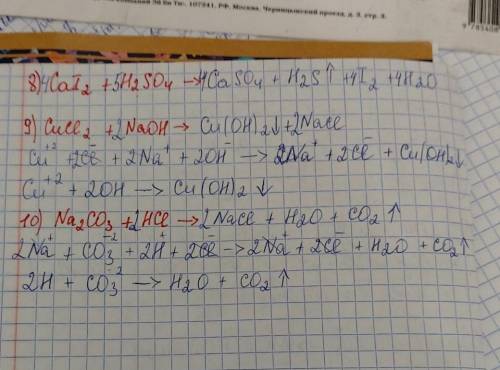 107241, РФ, Москва, Черницынский проезд, д. 3, стр. 3.
8) 4CaI2 + 5H2SO4 → 4CaSO4 + H2S↑ + 4I2 + 4H2O
9) CuCl2 + 2NaOH → Cu(OH)2↓ + 2NaCl
Cu⁺² + 2Cl⁻ + 2Na⁺ + 2OH⁻ → 2Na⁺ + 2Cl⁻ + Cu(OH)2↓
Cu⁺² + 2OH → Cu(OH)2↓
10) Na2CO3 + 2HCl → 2NaCl + H2O + CO2↑
2Na⁺ + CO3⁻² + 2H⁺ + 2Cl⁻ → 2Na⁺ + 2Cl⁻ + H2O + CO2↑
2H + CO3⁻² → H2O + CO2↑